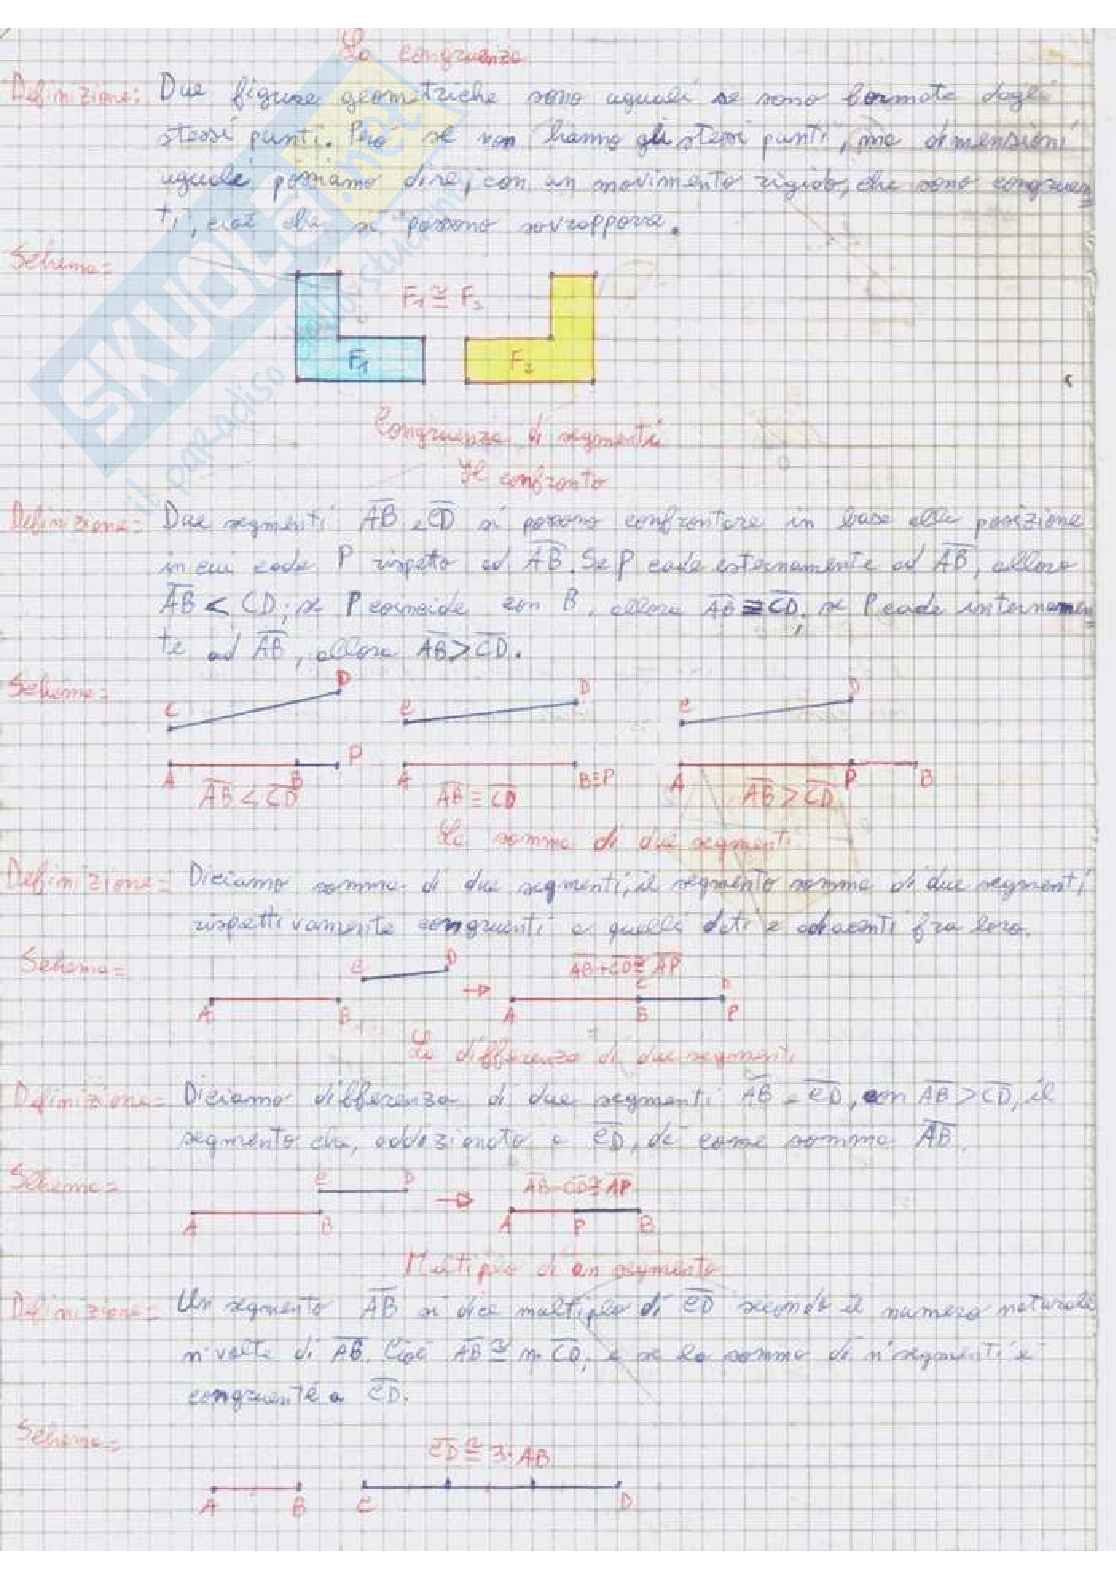 La congruenza
Definizione: Due figure geometriche sono uguali se sono formate dagli
stessi punti. Però se non hanno gli stessi punti, ma dimensioni
uguale possiamo dire, con un movimento rigido, che sono congruen
ti, cioè che si possono sovrapporre.
Schema=
F₁ ≅ F₂
F₁ F₂
Congruenza di segmenti
Il confronto
Definizione= Due segmenti AB e CD si possono confrontare in base alla posizione
in cui cade P rispetto ad AB. Se P cade esternamente ad AB, allora
AB < CD; se P coincide con B, allora AB ≡ CD; se P cade internamen
te ad AB, allora AB > CD.
Schema=
C D C D C D
A B P A B≡P A P B
AB < CD AB ≡ CD AB > CD
La somma di due segmenti
Definizione= Diciamo somma di due segmenti, il segmento somma di due segmenti
rispettivamente congruenti a quelli dati e adiacenti fra loro.
Schema=
C D AB+CD≅AP
A B C D
A B P
La differenza di due segmenti
Definizione= Diciamo differenza di due segmenti AB - CD, con AB > CD, il
segmento che, addizionato a CD, dà come somma AB.
Schema=
C D AB-CD≅AP
A B A P B
Multiplo di un segmento
Definizione= Un segmento AB si dice multiplo di CD secondo il numero naturale
n volte di AB. Cioè AB ≅ n· CD, e se la somma di n segmenti è
congruente a CD.
Schema=
CD ≅ 3·AB
A B C D
SKUOLA.net
il paradiso dello studente